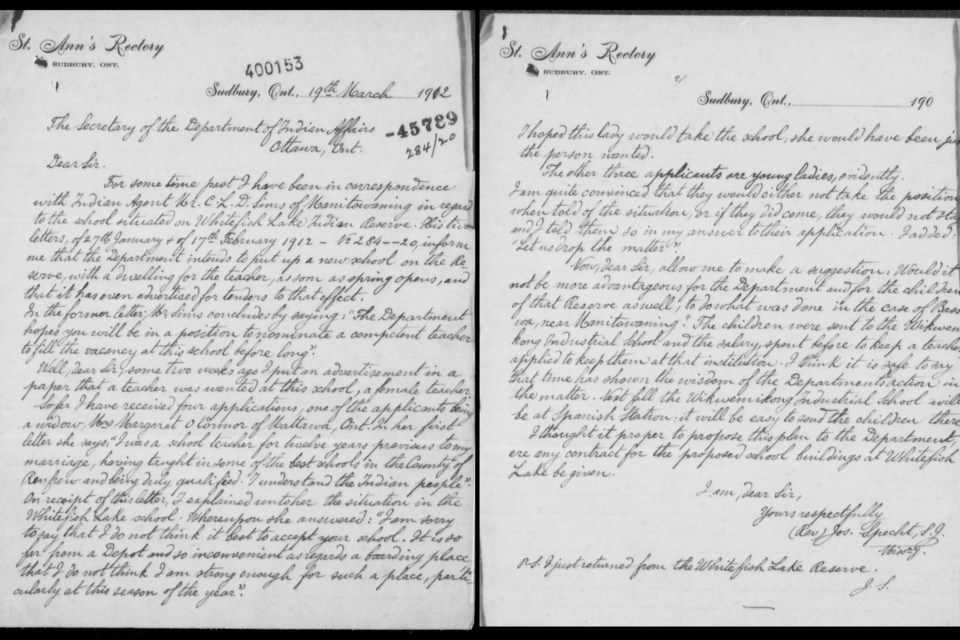 St. Ann's Rectory
SUDBURY, ONT.
400153
Sudbury, Ont., 19th March 1912
The Secretary of the Department of Indian Affairs
Ottawa, Ont.
-45789
284/20
Dear Sir.
For some time past I have been in correspondence
with Indian Agent Mr. C. L. D. Sims of Manitowaning in regard
to the school situated on Whitefish Lake Indian Reserve. His two
letters, of 27th January & of 17th February 1912 - No 284-20, inform
me that the Department intends to put up a new school on the Re-
serve, with a dwelling for the teacher, as soon as spring opens, and
that it has even advertised for tenders to that effect.
In the former letter, Mr Sims concludes by saying: "The Department
hopes you will be in a position to nominate a competent teacher
to fill the vacancy at this school before long".
Well, dear Sir, some two weeks ago I put an advertisement in a
paper that a teacher was wanted at this school, a female teacher.
So far I have received four applications, one of the applicants being
a widow, Mrs Margaret O'Connor of Mattawa, Ont. In her first
letter she says: "I was a school teacher for twelve years previous to my
marriage, having taught in some of the best schools in the County of
Renfrew and being duly qualified. I understand the Indian people".
On receipt of this letter, I explained unto her the situation in the
Whitefish Lake school. Whereupon she answered: "I am sorry
to say that I do not think it best to accept your school. It is so
far from a Depot and so inconvenient as regards a boarding place
that I do not think I am strong enough for such a place, parti-
cularly at this season of the year".
St. Ann's Rectory
SUDBURY, ONT.
Sudbury, Ont., 190
I hoped this lady would take the school, she would have been
the person wanted.
The other three applicants are young ladies, evidently.
I am quite convinced that they would either not take the position
when told of the situation, or if they did come, they would not
and I told them so in my answer to their application. I added:
"Let us drop the matter".
Now, dear Sir, allow me to make a suggestion: Would it
not be more advantageous for the Department and for the children
of that Reserve as well, to do what was done in the case of
near Manitowaning. The children were sent to the Wikwem-
kong Industrial School and the salary, spent before to keep a teacher,
applied to keep them at that institution. I think it is safe to say
that time has shown the wisdom of the Departments action in
the matter. Next fall the Wikwemikong Industrial School will
be at Spanish Station: it will be easy to send the children there.
I thought it proper to propose this plan to the Department,
ere any contract for the proposed school buildings at Whitefish
Lake be given.
I am, dear Sir,
Yours respectfully
(Rev) Jos. Specht, S.J.
P.S. I just returned from the Whitefish Lake Reserve.
J. S.